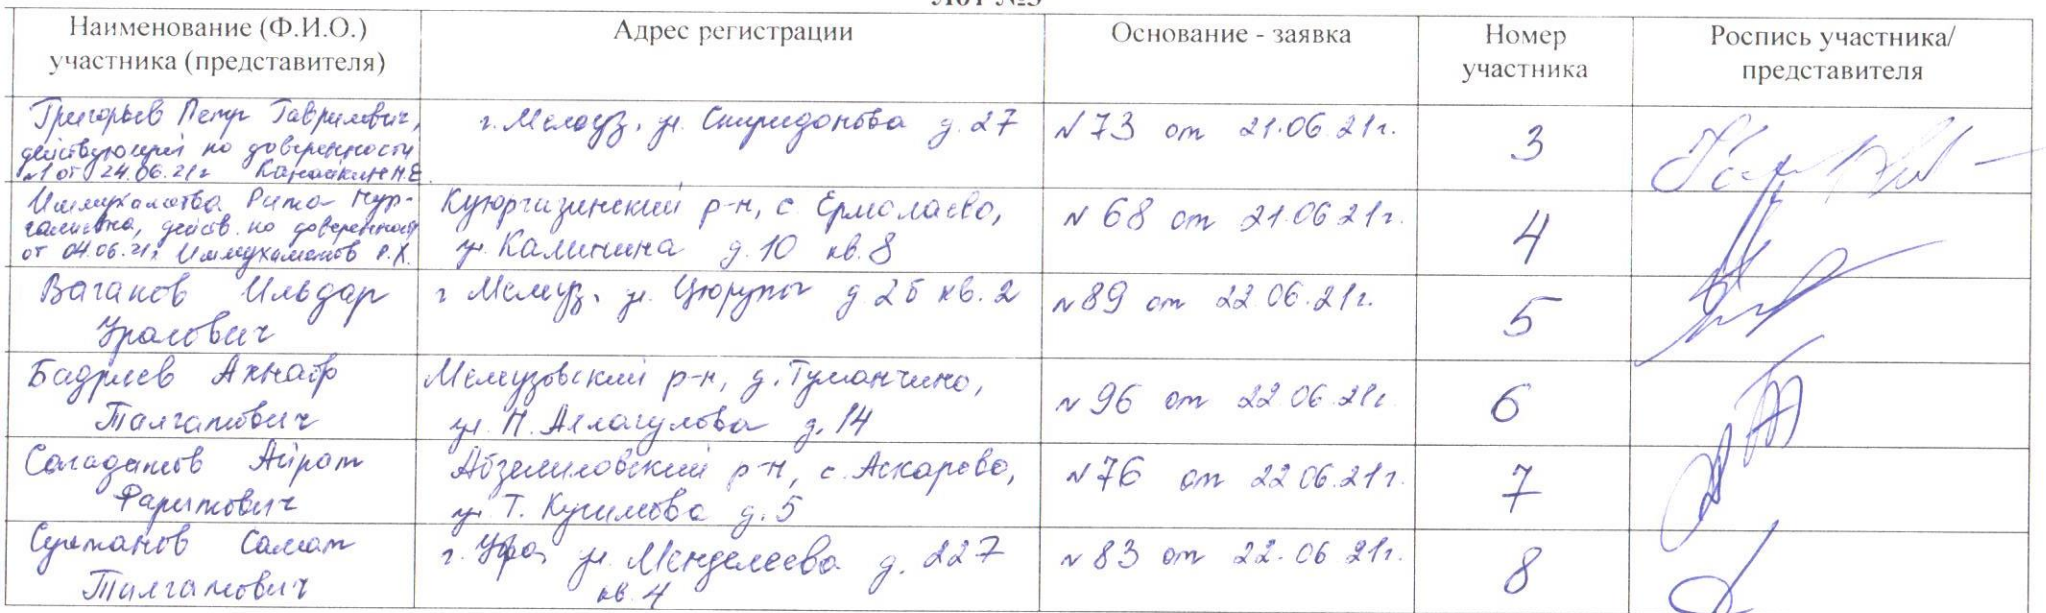 Лот №3
Наименование (Ф.И.О.)
участника (представителя)
Адрес регистрации
Основание - заявка
Номер
участника
Роспись участника/
представителя
Григорьев Петр Гаврилович,
действующий по доверенности
№1 от 24.06.21г Канайкин Н.Е.
г. Мелеуз, ул. Спиридонова д. 27
№ 73 от 21.06.21г.
3
Ишмухаметова Рита Нур-
галиевна, действ. по доверенности
от 04.06.21г Ишмухаметов Р.Х.
Куюргазинский р-н, с. Ермолаево,
ул. Калинина д. 10 кв. 8
№ 68 от 21.06.21г.
4
Вагапов Ильдар
Уралович
г Мелеуз, ул. Цюрупы д 25 кв. 2
№ 89 от 22.06.21г.
5
Бадриев Ахнаф
Талгатович
Мелеузовский р-н, д. Туманчино,
ул. д. 14
№ 96 от 22.06.21г.
6
Айрат
Фаритович
Абзелиловский р-н, с. Аскарово,
ул. Т. Кусимова д. 5
№ 76 от 22.06.21г.
7
Султанов Самат
Талгатович
г. Уфа, ул. Менделеева д. 227
кв. 4
№ 83 от 22.06.21г.
8